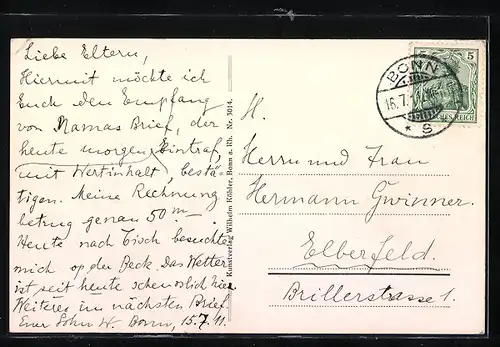 Liebe Eltern,
Hiermit möchte ich
Euch den Empfang
von Mamas Brief, der
heute morgen eintraf,
mit Wertinhalt, bestä-
tigen. Meine Rechnung
betrug genau 50 m
Heute nach Tisch besuchte
mich op der Beck. Das Wetter
ist seit heute scheusslich hier
Weiteres im nächsten Brief
Euer Sohn W. Bonn, 15.7.11.
Kunstverlag Wilhelm Köhler, Bonn a. Rh. Nr. 3014.
5 5
BONN
16.7.
* S
H.
Herrn und Frau
Hermann Gwinner.
Elberfeld.
Brillerstrasse 1.